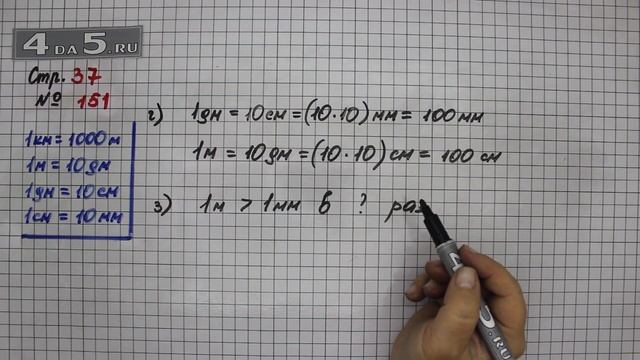 4 DA 5.RU
Стр. 37
№ 151
1км = 1000м
1м = 10дм
1дм = 10см
1см = 10мм
2) 1дм = 10см = (10·10) мм = 100мм
1м = 10дм = (10·10) см = 100 см
3) 1м > 1мм в ? раз